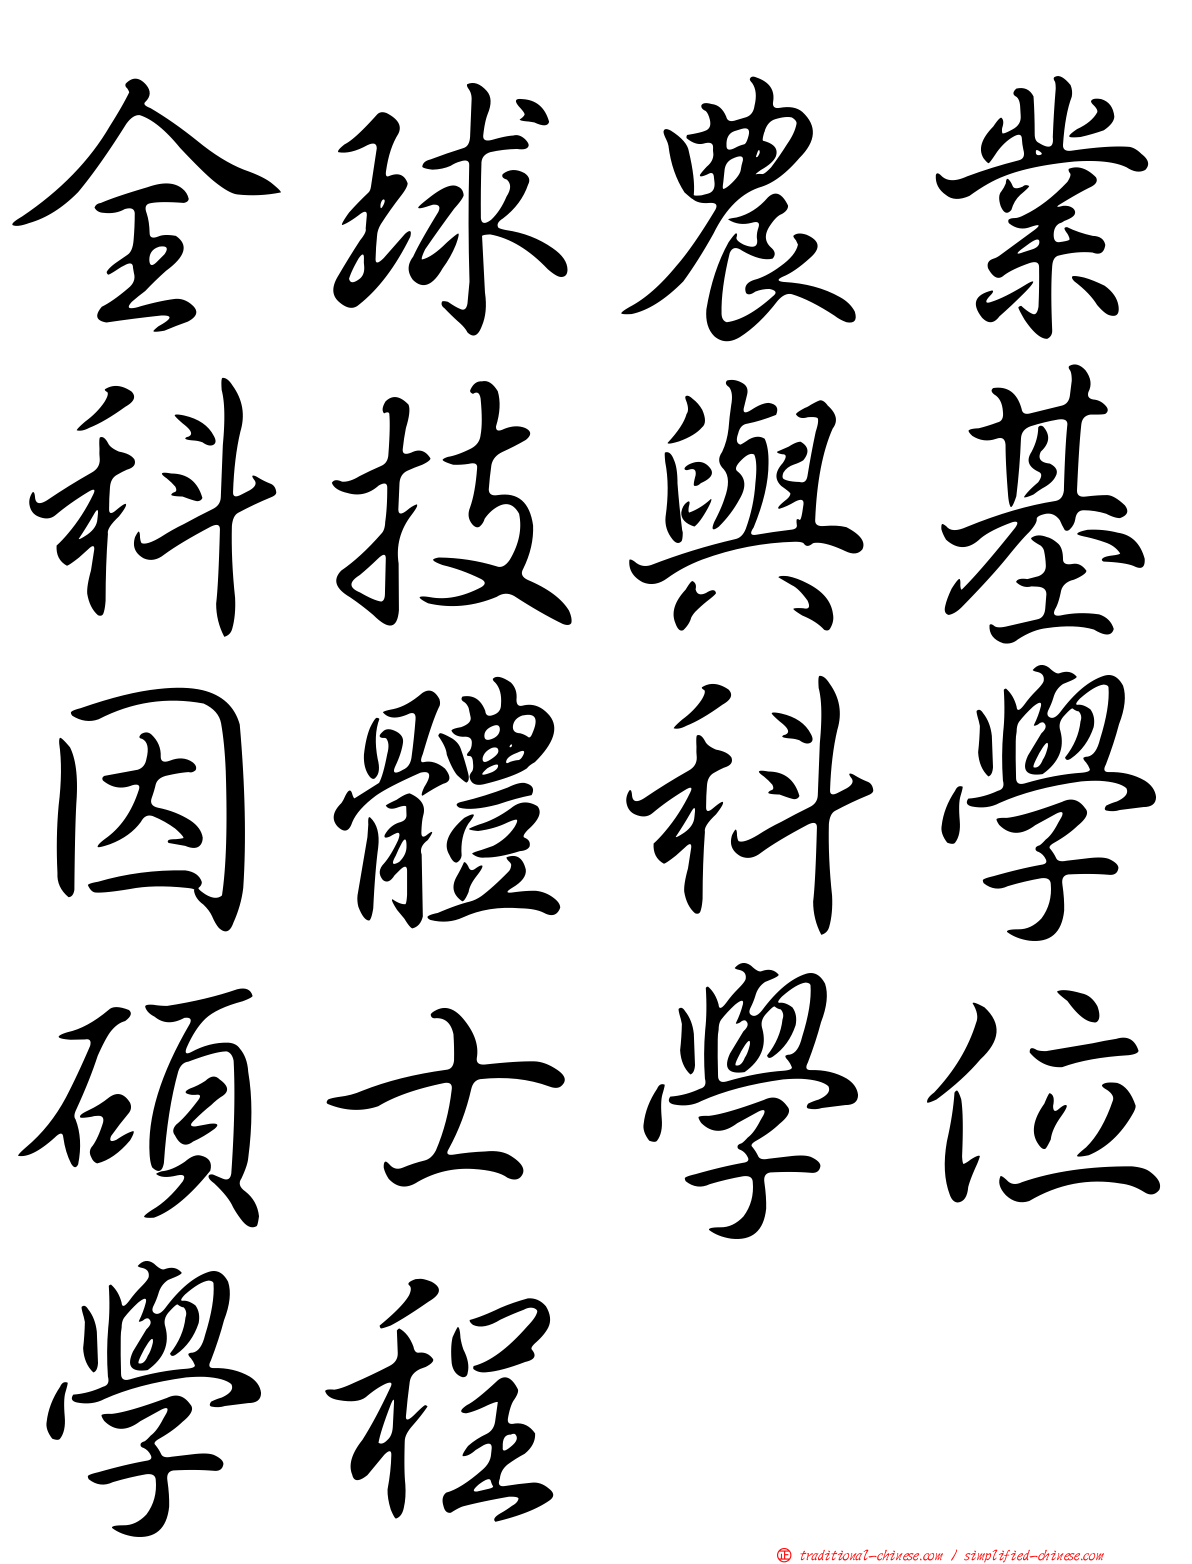 全球農業
科技與基
因體科學
碩士學位
學程
正 traditional-chinese.com / simplified-chinese.com